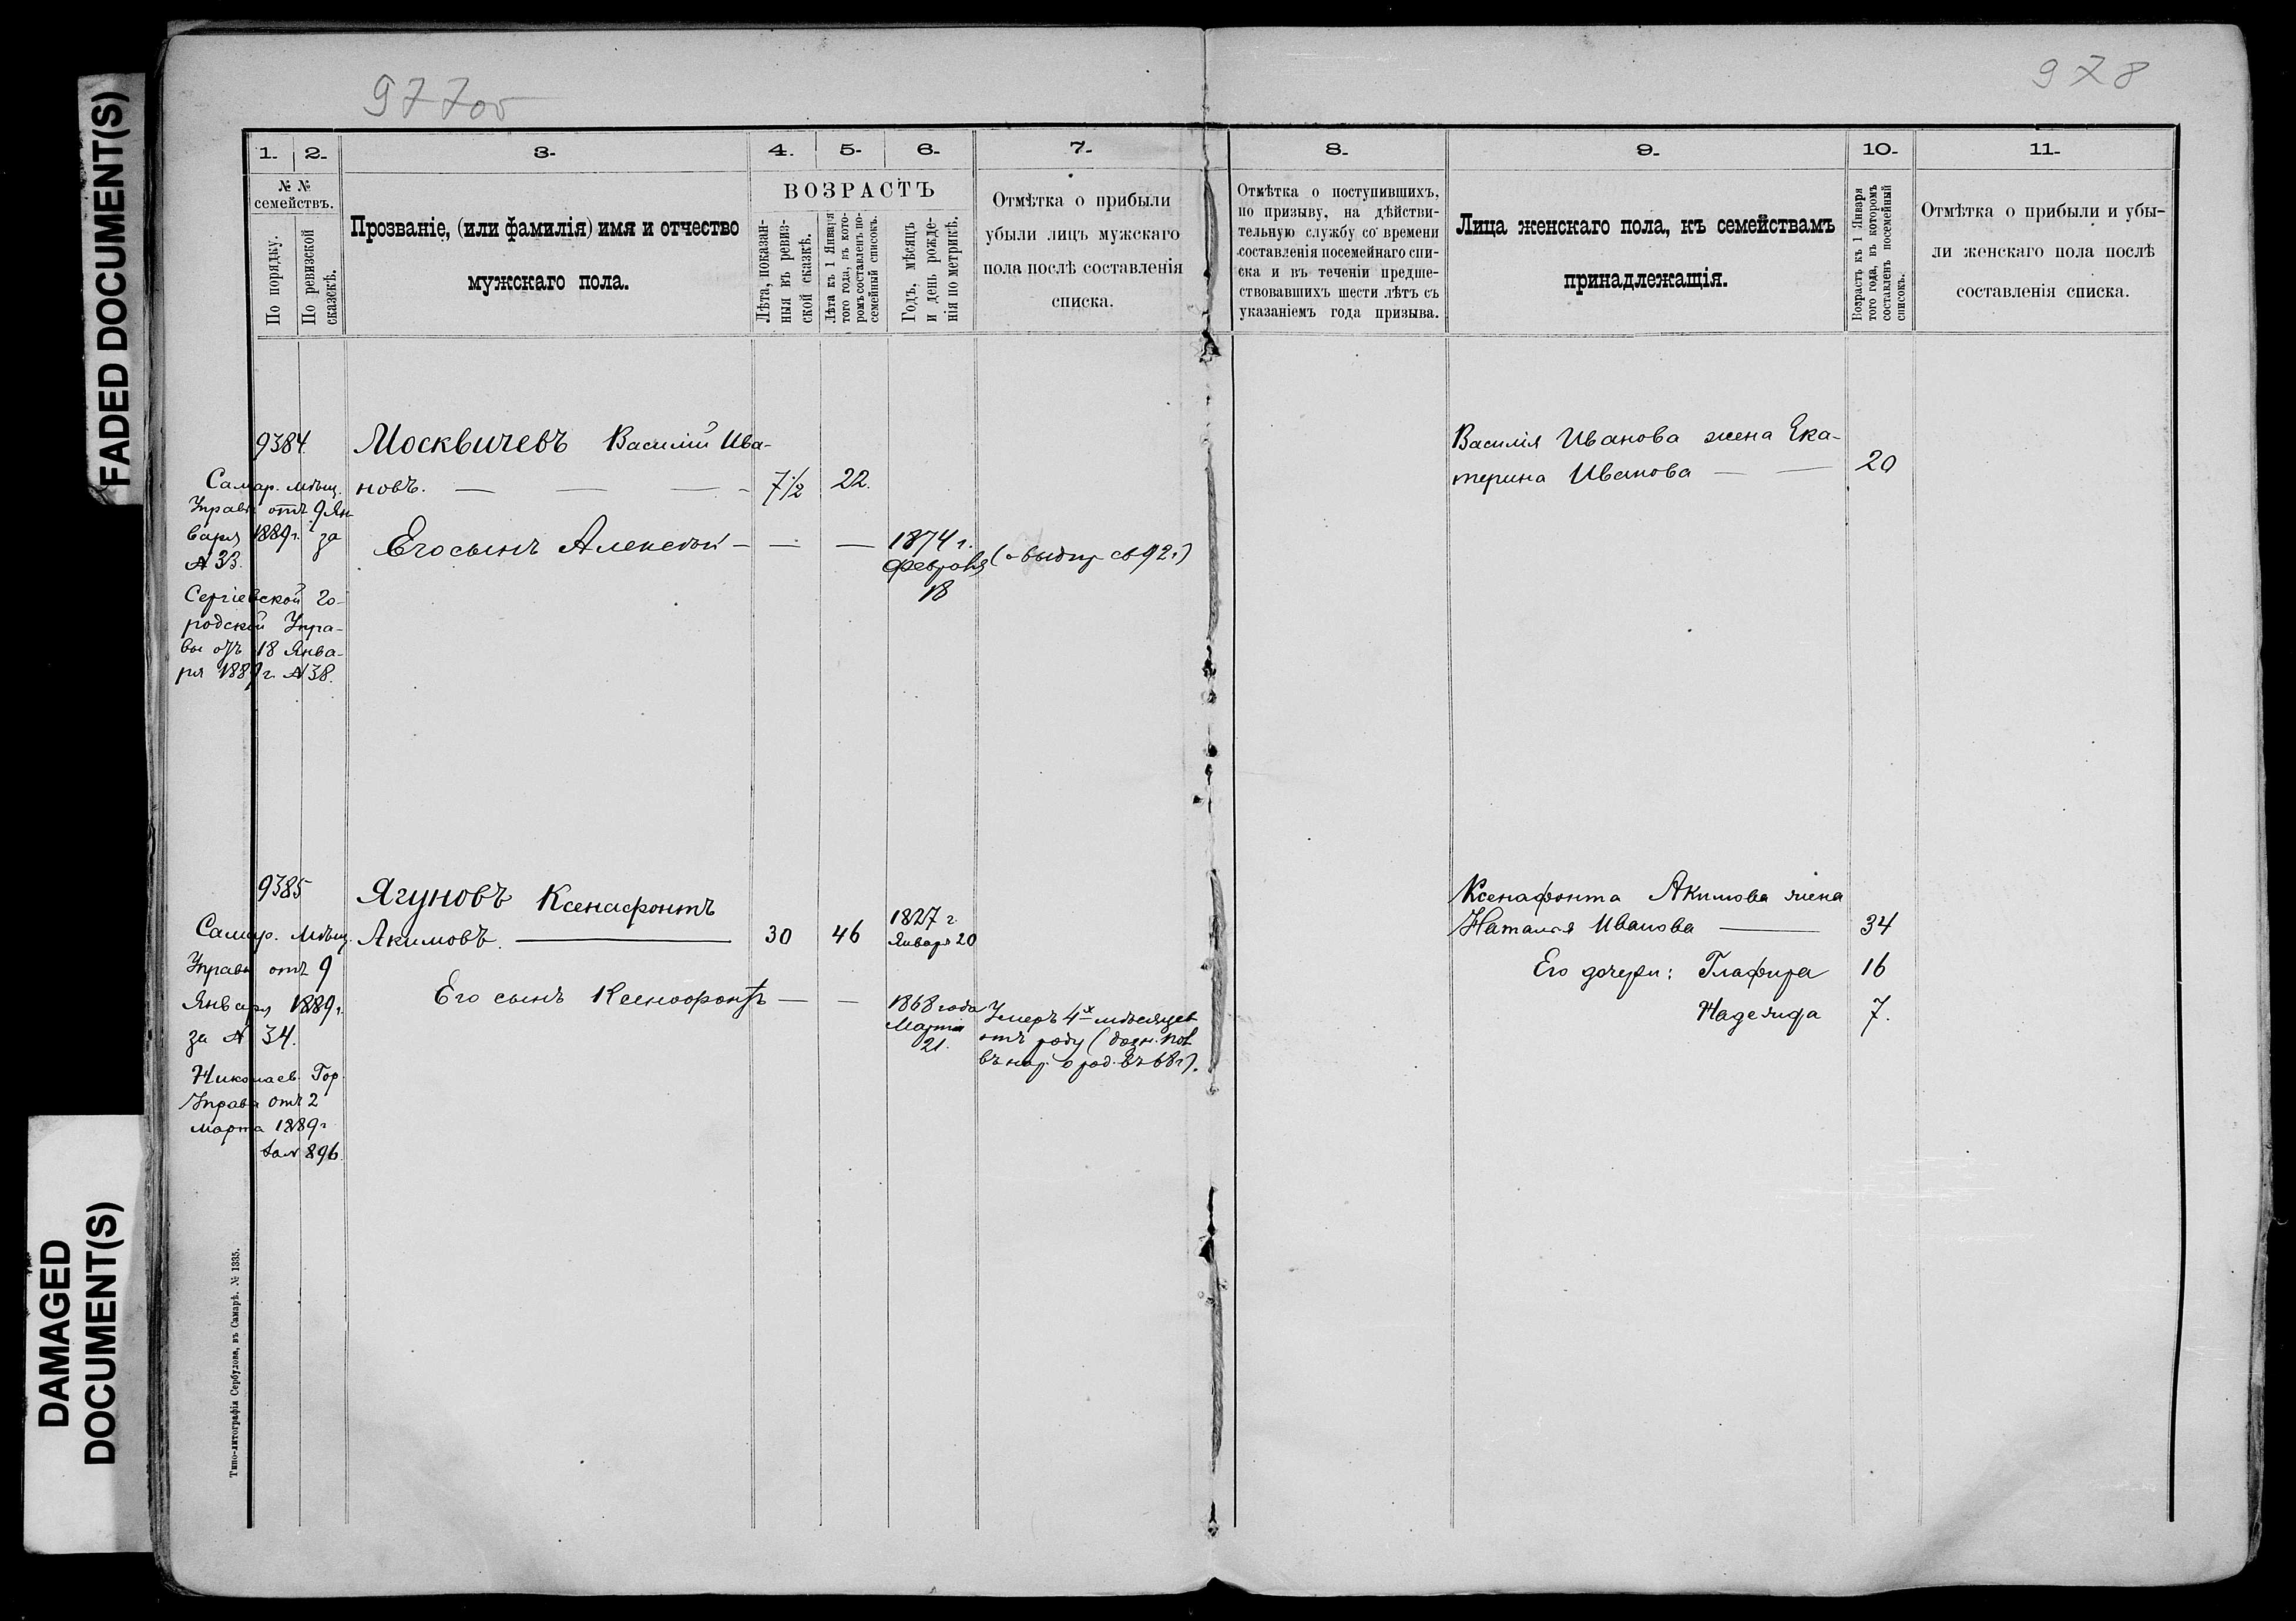 FADED DOCUMENT(S)
DAMAGED
DOCUMENT(S)
977об
978
1.
2.
3.
4.
5.
6.
7.
8.
9.
10.
11.
№ №
семействъ.
По порядку.
По ревизской
сказкѣ.
Прозваніе, (или фамилія) имя и отчество
мужскаго пола.
ВОЗРАСТЪ
Лѣта, показан-
ныя въ ревиз-
ской сказкѣ.
Лѣта къ 1 Января
того года, въ кото-
ромъ составленъ по-
семейный списокъ.
Годъ, мѣсяцъ
и день рожде-
нія по метрикѣ.
Отмѣтка о прибыли
убыли лицъ мужскаго
пола послѣ составленія
списка.
Отмѣтка о поступившихъ,
по призыву, на дѣйстви-
тельную службу со времени
составленія посемейнаго спи-
ска и въ теченіи предше-
ствовавшихъ шести лѣтъ съ
указаніемъ года призыва.
Лица женскаго пола, къ семействамъ
принадлежащія.
Возрастъ къ 1 Января
того года, въ которомъ
составленъ посемейный
списокъ.
Отмѣтка о прибыли и убы-
ли женскаго пола послѣ
составленія списка.
9384.
Самар. мѣщ.
Управы отъ 9 Ян
варя 1889 г. за
№ 33.
Сергіевской Го-
родской Упра-
вы отъ 18 Янва-
ря 1889 г. № 38.
Москвичевъ Василій Ива-
новъ. — — — 7 1/2 22.
Его сынъ Алексѣй — — — 1874 г.
февраля
18
Василія Иванова жена Ека-
терина Иванова — — 20
9385
Самар. мѣщ.
Управы отъ 9
Января 1889 г.
за № 34.
Николаев. Гор.
Управы отъ 2
марта 1889 г
за № 896.
Ягуновъ Ксенафонтъ
Акимовъ. — 30 46 1827 г
Января 20
Его сынъ Ксенофонтъ — — 1868 года
Марта
21.
Умеръ 4х мѣсяцев
отъ роду (
Ксенафонта Акимова жена
Наталья Иванова — 34
Его дочери: Глафира 16
Надежда 7.
Типо-литографія Сербулова, въ Самарѣ. № 1335.